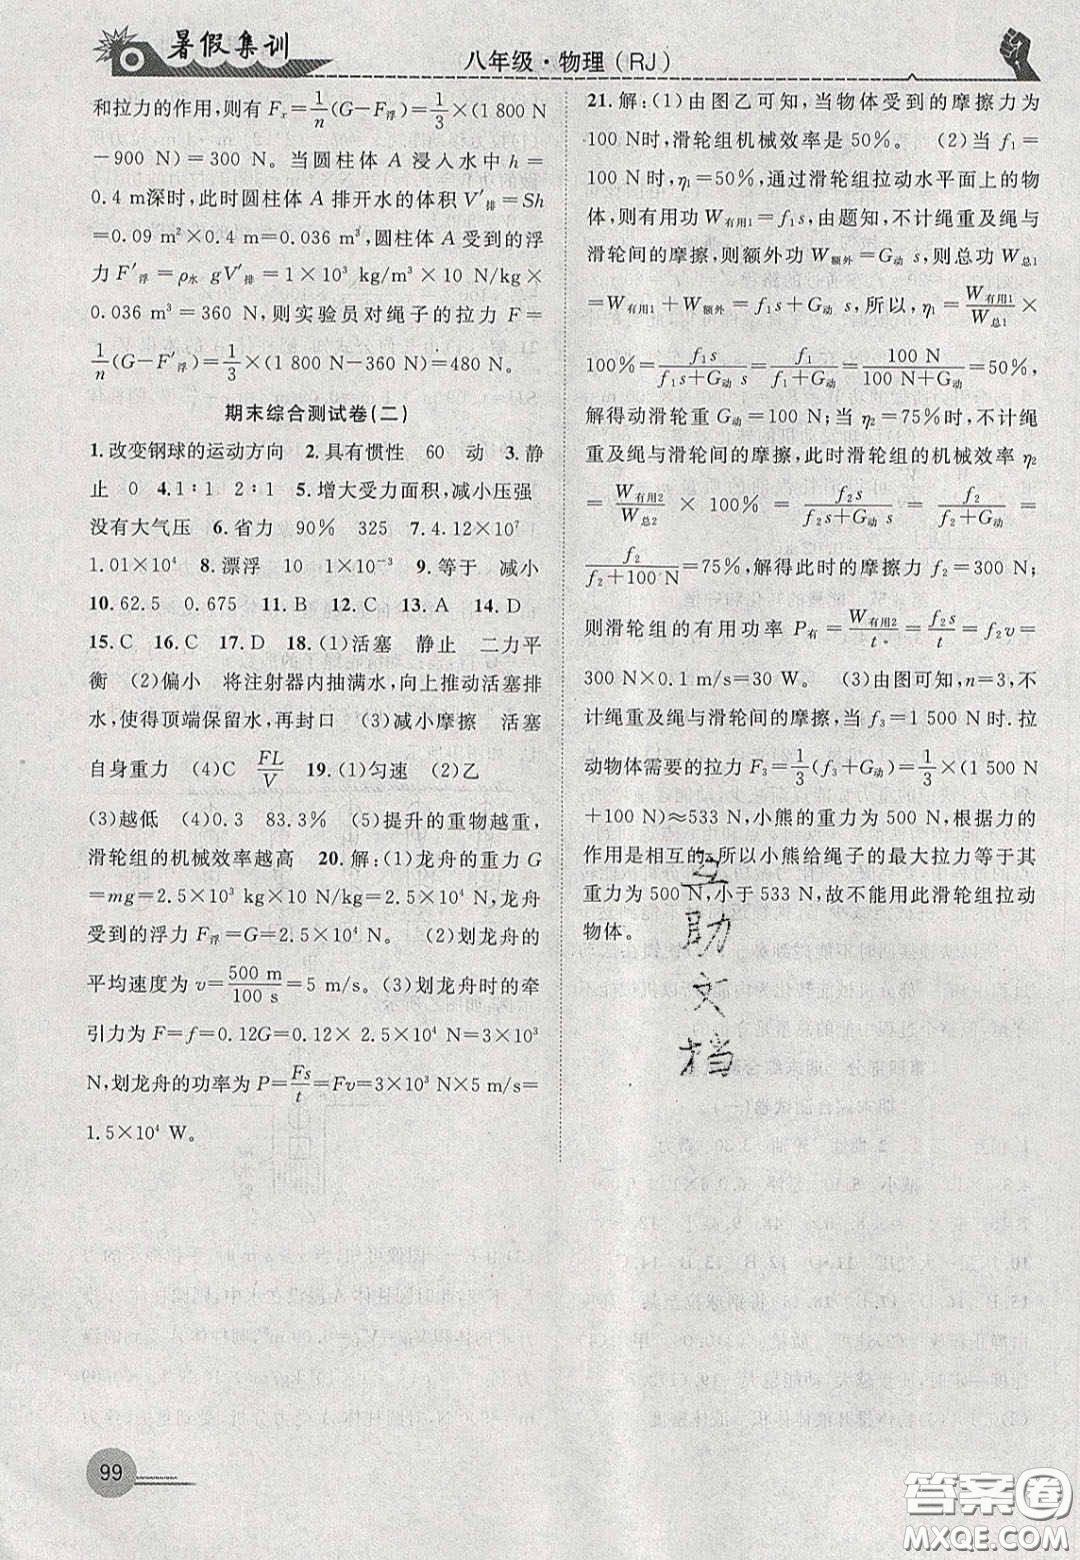 暑假集训
八年级·物理(RJ)
和拉力的作用,则有 Fₓ=1/n(G-F浮)=1/3×(1 800 N
-900 N)=300 N。当圆柱体 A 浸入水中 h=
0.4 m深时,此时圆柱体 A 排开水的体积 V′排=Sh
=0.09 m²×0.4 m=0.036 m³,圆柱体 A 受到的浮
力 F′浮=ρ水 gV′排=1×10³ kg/m³×10 N/kg×
0.036 m³=360 N,则实验员对绳子的拉力 F=
1/n(G-F′浮)=1/3×(1 800 N-360 N)=480 N。
期末综合测试卷(二)
1.改变钢球的运动方向 2.具有惯性 60 动 3.静
止 0 4.1∶1 2∶1 5.增大受力面积,减小压强
没有大气压 6.省力 90% 325 7.4.12×10⁷
1.01×10⁴ 8.漂浮 10 1×10⁻³ 9.等于 减小
10.62.5 0.675 11.B 12.C 13.A 14.D
15.C 16.C 17.D 18.(1)活塞 静止 二力平
衡 (2)偏小 将注射器内抽满水,向上推动活塞排
水,使得顶端保留水,再封口 (3)减小摩擦 活塞
自身重力 (4)C FL/V 19.(1)匀速 (2)乙
(3)越低 (4)0.3 83.3% (5)提升的重物越重,
滑轮组的机械效率越高 20.解:(1)龙舟的重力 G
=mg=2.5×10³ kg×10 N/kg=2.5×10⁴ N,龙舟
受到的浮力 F浮=G=2.5×10⁴ N。 (2)划龙舟的
平均速度为 v=500 m/100 s=5 m/s。 (3)划龙舟时的牵
引力为 F=f=0.12G=0.12× 2.5×10⁴ N=3×10³
N,划龙舟的功率为 P=Fs/t=Fv=3×10³ N×5 m/s=
1.5×10⁴ W。
21.解:(1)由图乙可知,当物体受到的摩擦力为
100 N时,滑轮组机械效率是 50%。 (2)当 f₁=
100 N时,η₁=50%,通过滑轮组拉动水平面上的物
体,则有用功 W有用1=f₁s,由题知,不计绳重及绳与
滑轮间的摩擦,则额外功 W额外=G动 s,则总功 W总1
=W有用1+W额外=f₁s+G动 s,所以,η₁=W有用1/W总1×
100%=f₁s/(f₁s+G动 s)=f₁/(f₁+G动)=100 N/(100 N+G动)=50%,
解得动滑轮重 G动=100 N;当 η₂=75%时,不计绳
重及绳与滑轮间的摩擦,此时滑轮组的机械效率 η₂
=W有用2/W总2×100%=f₂s/(f₂s+G动 s)=f₂/(f₂+G动)=
f₂/(f₂+100 N)=75%,解得此时的摩擦力 f₂=300 N;
则滑轮组的有用功率 P有=W有用2/t=f₂s/t=f₂v=
300 N×0.1 m/s=30 W。 (3)由图可知,n=3,不
计绳重及绳与滑轮间的摩擦,当 f₃=1 500 N时.拉
动物体需要的拉力 F₃=1/3(f₃+G动)=1/3×(1 500 N
+100 N)≈533 N,小熊的重力为 500 N,根据力的
作用是相互的,所以小熊给绳子的最大拉力等于其
重力为 500 N,小于 533 N,故不能用此滑轮组拉动
物体。
互
助
文
档
99
答案圈
MXQE.COM